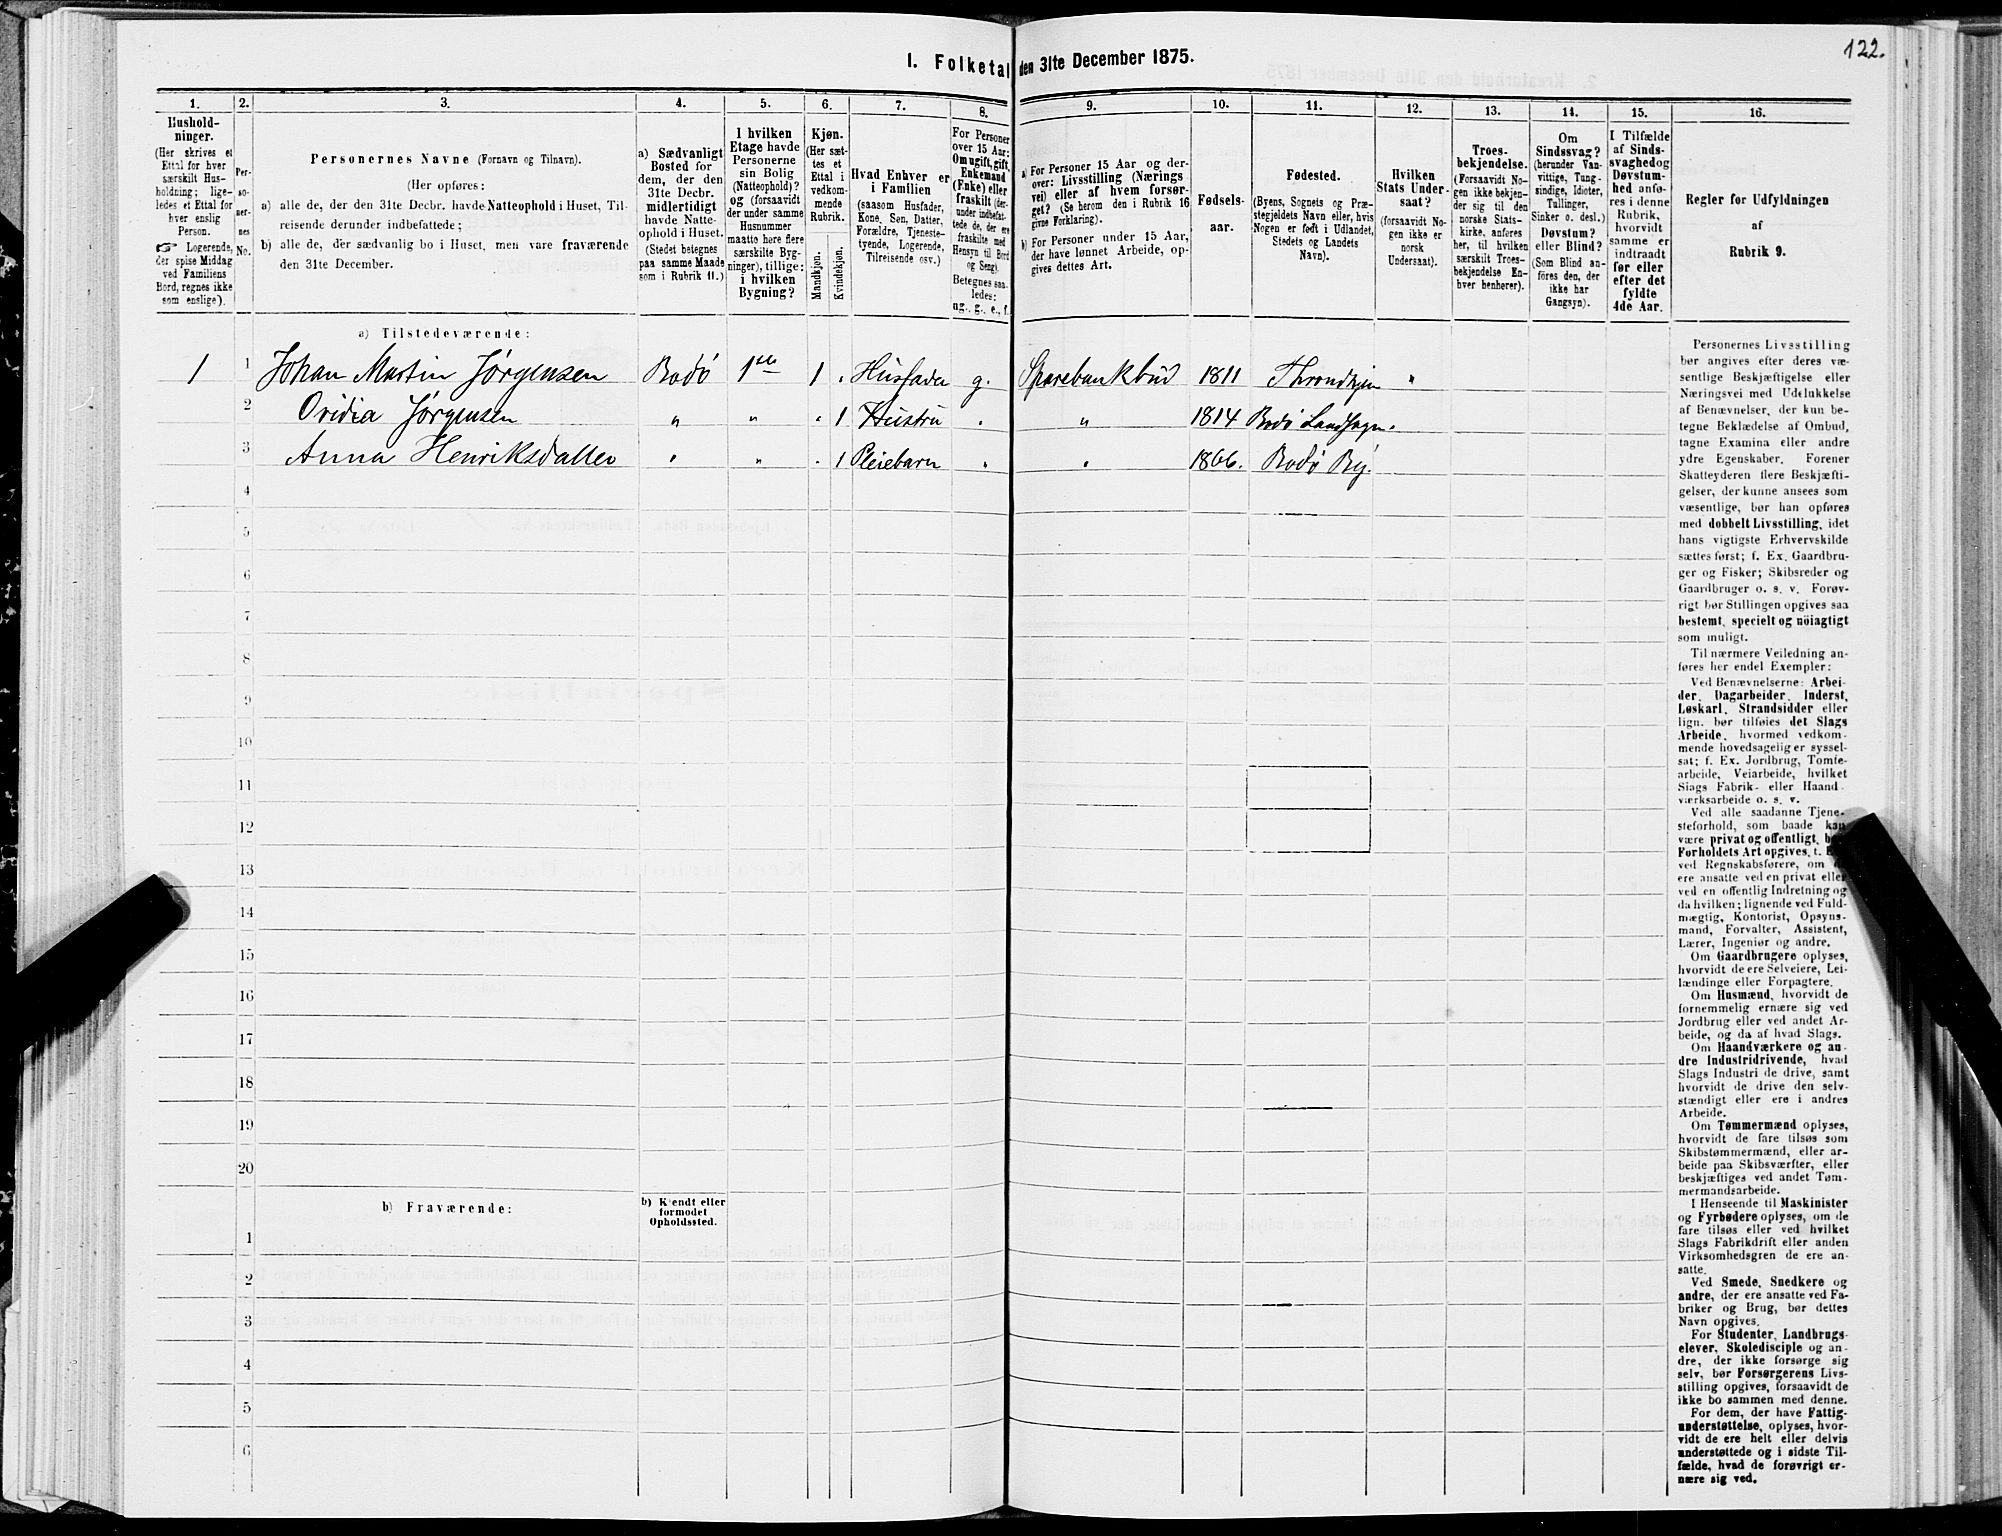 122.
1. Folketal den 31te December 1875.
1. 2. 3. 4. 5. 6. 7. 8. 9. 10. 11. 12. 13. 14. 15. 16.
Hushold-
ninger.
(Her skrives et
Ettal for hver
særskilt Hus-
holdning; lige-
ledes et Ettal for
hver enslig
Person.
☞ Logerende,
der spise Middag
ved Familiens
Bord, regnes ikke
som enslige).
Per-
so-
ner-
nes
No.
Personernes Navne (Fornavn og Tilnavn).
(Her opføres:
a) alle de, der den 31te Decbr. havde Natteophold i Huset, Til-
reisende derunder indbefattede;
b) alle de, der sædvanlig bo i Huset, men vare fraværende
den 31te December.
a) Sædvanligt
Bosted for
dem, der den
31te Decbr.
midlertidigt
havde Natte-
ophold i Huset.
(Stedet betegnes
paa samme Maade
som i Rubrik 11.)
I hvilken
Etage havde
Personerne
sin Bolig
(Natteophold)?
og (forsaavidt
der under samme
Husnummer
maatte høre flere
særskilte Byg-
ninger), tillige:
i hvilken
Bygning?
Kjøn.
(Her sæt-
tes et
Ettal i
vedkom-
mende
Rubrik.
Mandkjøn.
Kvindekjøn.
Hvad Enhver er
i Familien
(saasom Husfader,
Kone, Søn, Datter,
Forældre, Tjeneste-
tyende, Logerende,
Tilreisende osv.)
For Personer
over 15 Aar:
Om ugift, gift,
Enkemand
(Enke) eller
fraskilt (der-
under indbefat-
tede de, der ere
fraskilte med
Hensyn til Bord
og Seng).
Betegnes saa-
ledes:
ug., g., e., f.
a) For Personer 15 Aar og der-
over: Livsstilling (Nærings
vei) eller af hvem forsør-
get? (Se herom den i Rubrik 16
givne Forklaring).
b) For Personer under 15 Aar,
der have lønnet Arbeide, op-
gives dettes Art.
Fødsels-
aar.
Fødested.
(Byens, Sognets og Præ-
stegjeldets Navn eller, hvis
Nogen er født i Udlandet,
Stedets og Landets
Navn).
Hvilken
Stats Under-
saat?
(forsaavidt No-
gen ikke er
norsk
Undersaat).
Troes-
bekjendelse.
(Forsaavidt No-
gen ikke bekjen-
der sig til den
norske Stats-
kirke, anføres
her, til hvilken
særskilt Troes-
bekjendelse En-
hver henhører).
Om
Sindssvag?
(herunder Van-
vittige, Tung-
sindige, Idioter,
Tullinger,
Sinker o. desl.)
Døvstum?
eller Blind?
(Som Blind an-
føres den, der
ikke har
Gangsyn).
I Tilfælde
af Sinds-
svaghed og
Døvstum-
hed anfø-
res i denne
Rubrik,
hvorvidt
samme er
indtraadt
før eller
efter det
fyldte
4de Aar.
Regler for Udfyldningen
af
Rubrik 9.
a) Tilstedeværende:
1 1 Johan Martin Jørgensen Bodø 1ste 1 . Husfader g. Sparebankbud 1811 Throndhjem "
2 Oridia Jørgensen " " . 1 Hustru . " 1814 Bodø Landsogn.
3 Anna Henriksdatter " " . 1 Pleiebarn " " 1866. Bodø By.
4
5
6
7
8
9
10
11
12
13
14
15
16
17
18
19
20
b) Fraværende: b) Kjendt eller
formodet
Opholdssted.
1
2
3
4
5
6
Personernes Livsstilling
bør angives efter deres væ-
sentlige Beskjæftigelse eller
Næringsvei med Udelukkelse
af Benævnelser, der kun be-
tegne Beklædelse af Ombud,
tagne Examina eller andre
ydre Egenskaber. Forener
Skatteyderen flere Beskjæfti-
gelser, der kunne ansees som
væsentlige, bør han opføres
med dobbelt Livsstilling, idet
hans vigtigste Erhvervskilde
sættes først; f. Ex. Gaardbru-
ger og Fisker; Skibsreder og
Gaardbruger o. s. v. Forøv-
rigt bør Stillingen opgives saa
bestemt, specielt og nöiagtigt
som muligt.
Til nærmere Veiledning an-
føres her endel Exempler:
Ved Benævnelserne: Arbei-
der, Dagarbeider, Inderst,
Løskarl, Strandsidder eller
lign. bør tilføies det Slags
Arbeide, hvormed vedkom-
mende hovedsagelig er syssel-
sat; f. Ex. Jordbrug, Tomte-
arbeide, Veiarbeide, hvilket
Slags Fabrik- eller Haand-
værksarbeide o. s. v.
Ved alle saadanne Tjene-
steforhold, som baade kan
være privat og offentligt,
Forholdets Art opgives, t.
ved Regnskabsførere, om
ere ansatte ved en privat eller
ved en offentlig Indretning og
da hvilken; lignende ved Fuld-
mægtig, Kontorist, Opsyns-
mand, Forvalter, Assistent,
Lærer, Ingeniør og andre.
Om Gaardbrugere oplyses,
hvorvidt de ere Selveiere, Lei-
lændinge eller Forpagtere.
Om Husmænd, hvorvidt de
fornemmelig ernære sig ved
Jordbrug eller ved andet Ar-
beide, og da af hvad Slags.
Om Haandværkere og an-
dre Industridrivende, hvad
Slags Industri de drive, samt
hvorvidt de drive den selv-
stændigt eller ere i andres
Arbeide.
Om Tømmermænd oplyses,
hvorvidt de fare tilsøs som
Skibstømmermænd, eller ar-
beide paa Skibsværfter, eller
beskjæftiges ved andet Tøm-
mermandsarbeide.
I Henseende til Maskinister
og Fyrbødere oplyses, om de
fare tilsøs eller ved hvilket
Slags Fabrikdrift eller anden
Virksomhedsgren de ere an-
satte.
Ved Smede, Snedkere og
andre, der ere ansatte ved Fa-
briker og Brug, bør dettes
Navn opgives.
For Studenter, Landbrugs-
elever, Skoledisciple og an-
dre, der ikke forsørge sig
selv, bør Forsørgerens Livs-
stilling opgives, forsaavidt de
ikke bo sammen med denne.
For dem, der have Fattig-
understøttelse, oplyses, hvor-
vidt de ere helt eller delvis
understøttede og i sidste Til-
fælde, hvad de forøvrigt er-
nære sig ved.